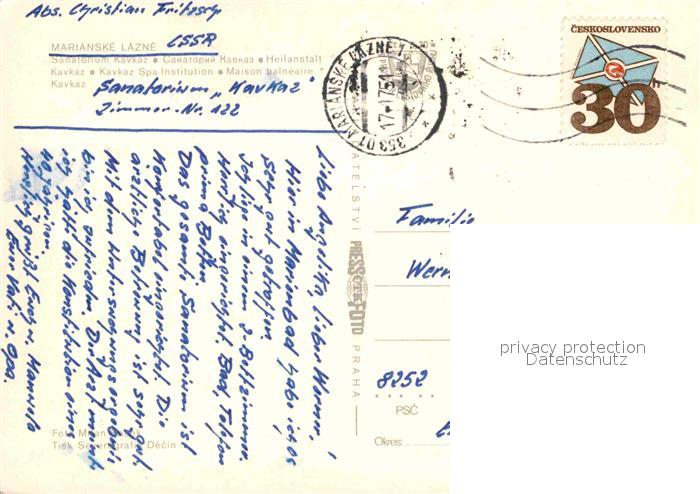 Abs. Christian Fritzsch
MARIÁNSKÉ LÁZNĚ
ČSSR
Sanatorium Kavkaz • Санаторий Кавказ • Heilanstalt
Kavkaz • Kavkaz Spa Institution • Maison balnéaire
Kavkaz
Sanatorium „Kavkaz"
Zimmer-Nr. 122
353 01 MARIÁNSKÉ LÁZNĚ 1
ČESKOSLOVENSKO
30
h
Liebe Angelika, lieber Werner,
Hier in Marienbad habe ich es
sehr gut getroffen.
Ich liege in einem 2-Bettzimmer
Bad, Telefon
prima Betten.
Das gesamte Sanatorium ist
Komfortabel eingerichtet. Die
ärztliche Betreuung ist sehr gut.
Mit dem Untersuchungsergebnis
bin ich zufrieden. Der Arzt meint
ich hätte die Konstitution eines
Herzlich grüßt Euch u. Manuela
Euer Vati u. Opa.
PRESSFOTO
PRAHA
Familie
Wern
8252
PSČ
Okres:
Foto Milan
Tisk Severografia Děčín
privacy protection
Datenschutz